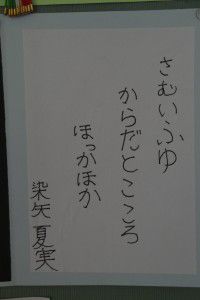 さむいふゆ
からだとこころ
ほっかほか
染矢夏実